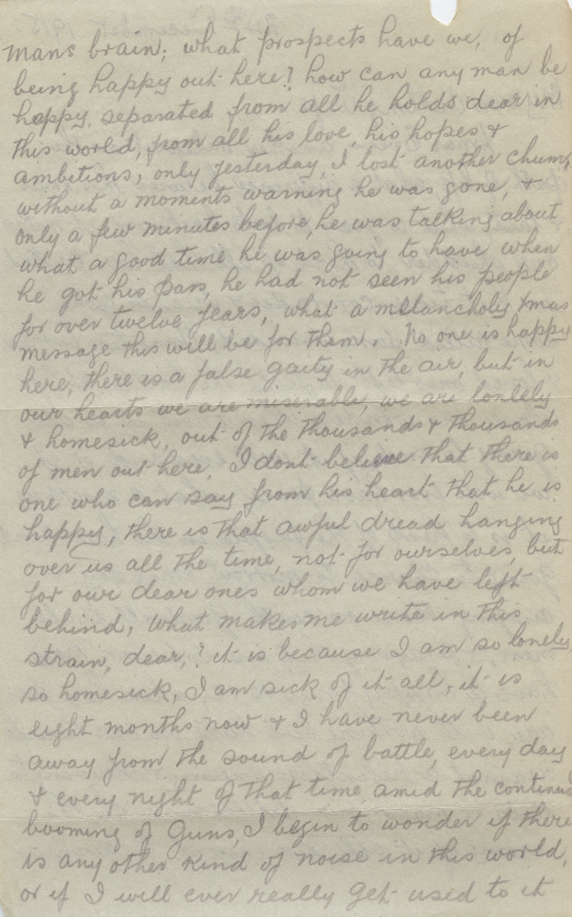 mans brain; what prospects have we, of
being happy out here? how can any man be
happy, separated from all he holds dear in
this world, from all his love, his hopes &
ambitions; only yesterday, I lost another chum,
without a moments warning he was gone, &
only a few minutes before he was talking about
what a good time he was going to have when
he got his pass, he had not seen his people
for over twelve years, what a melancholy Xmas
message this will be for them. No one is happy
here, there is a false gaity in the air, but in
our hearts we are miserable, we are lonlely
& homesick, out of the thousands & thousands
of men out here, I dont believe that there is
one who can say from his heart that he is
happy, there is that awful dread hanging
over us all the time, not for ourselves, but
for our dear ones whom we have left
behind; What makes me write in this
strain, dear,? it is because I am so lonely,
so homesick, I am sick of it all, it is
eight months now & I have never been
away from the sound of battle, every day
& every night of that time amid the
booming of Guns, I begin to wonder if there
is any other kind of noise in this world,
or if I will ever really get used to it